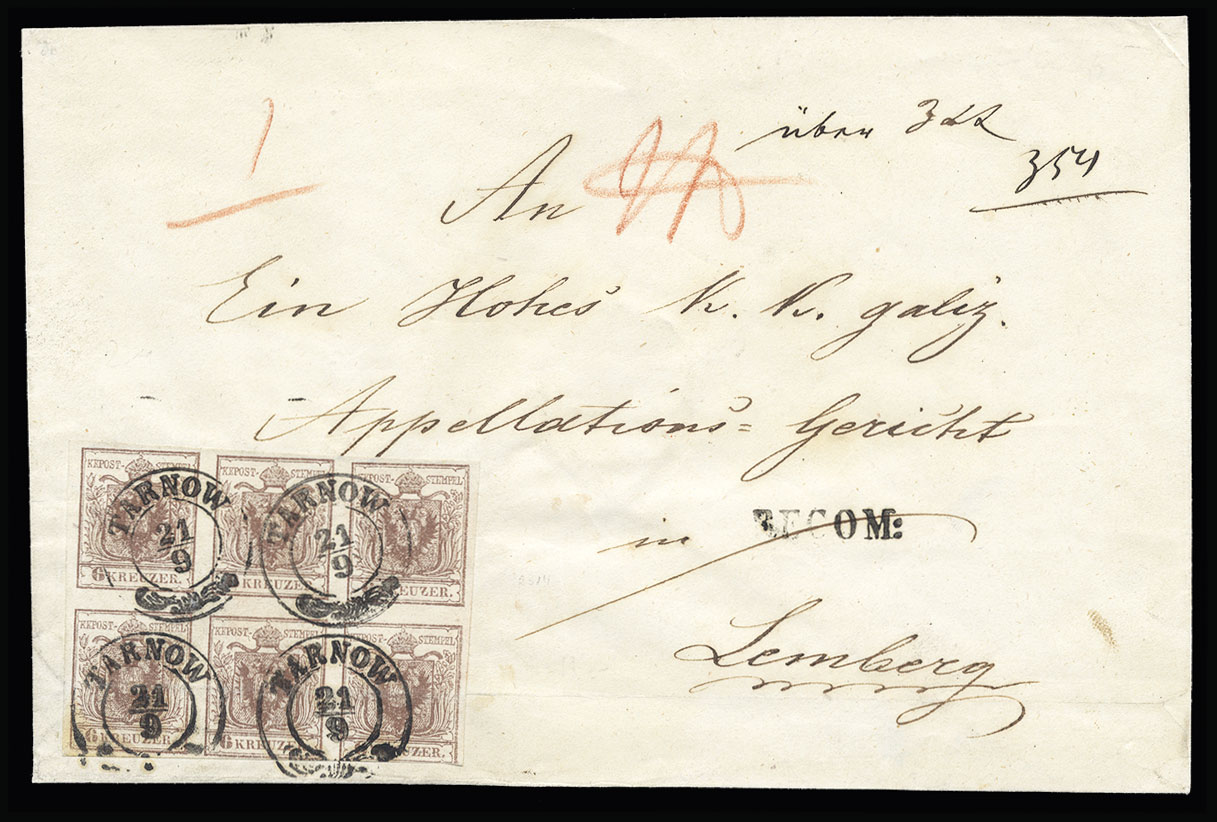 1
über 3 Lt
354
An
Ein Hohes K. K. galiz.
Appellations= Gericht
in
RECOM:
Lemberg
KKPOST-STEMPEL KKPOST-STEMPEL KKPOST-STEMPEL
TARNOW TARNOW
21 21
9 9
6 KREUZER. 6 KREUZER. KREUZER.
KKPOST-STEMPEL KKPOST-STEMPEL KKPOST-STEMPEL
TARNOW TARNOW
21 21
9 9
6 KREUZER. 6 KREUZER. KREUZER.